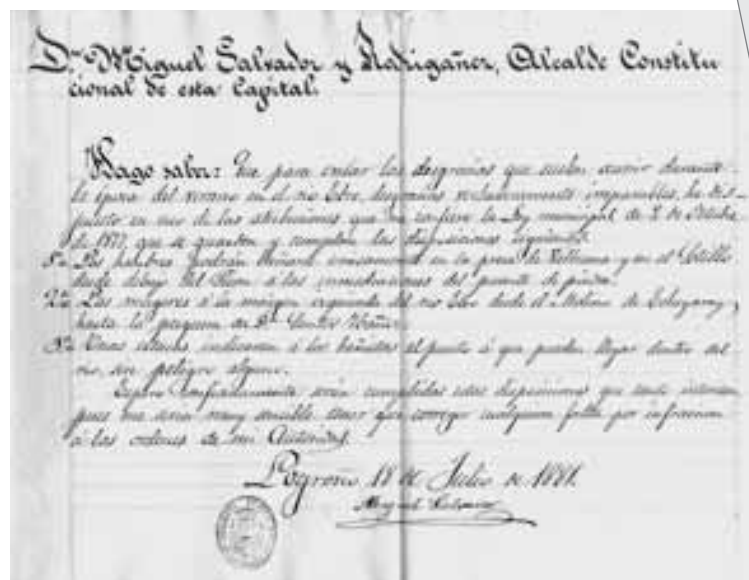 Dn. Miguel Salvador y Rodrigañez, Alcalde Constitu
cional de esta Capital.
Hago saber: Que para evitar las desgracias que suelen ocurrir durante
la época del verano en el rio Ebro, desgracias verdaderamente irreparables, he dis-
puesto en uso de las atribuciones que me confiere la Ley municipal de 2 de Octubre
de 1877, que se guarden y cumplan las disposiciones siguientes.
1ª Los hombres podrán bañarse unicamente en la presa de y en el
desde debajo del á las inmediaciones del puente de piedra.
2ª Las mugeres á la margen izquierda del rio Ebro desde el Molino de
hasta la de Dn.
3ª Unas indicaran á los bañistas el punto á que pueden llegar dentro del
rio, sin peligro alguno.
Espero confiadamente serán cumplidas estas disposiciones que tanto interesan
pues me seria muy sensible tener que corregir cualquiera falta por
á las ordenes de mi Autoridad.
Logroño 18 de Julio de 1881.
Miguel Salvador